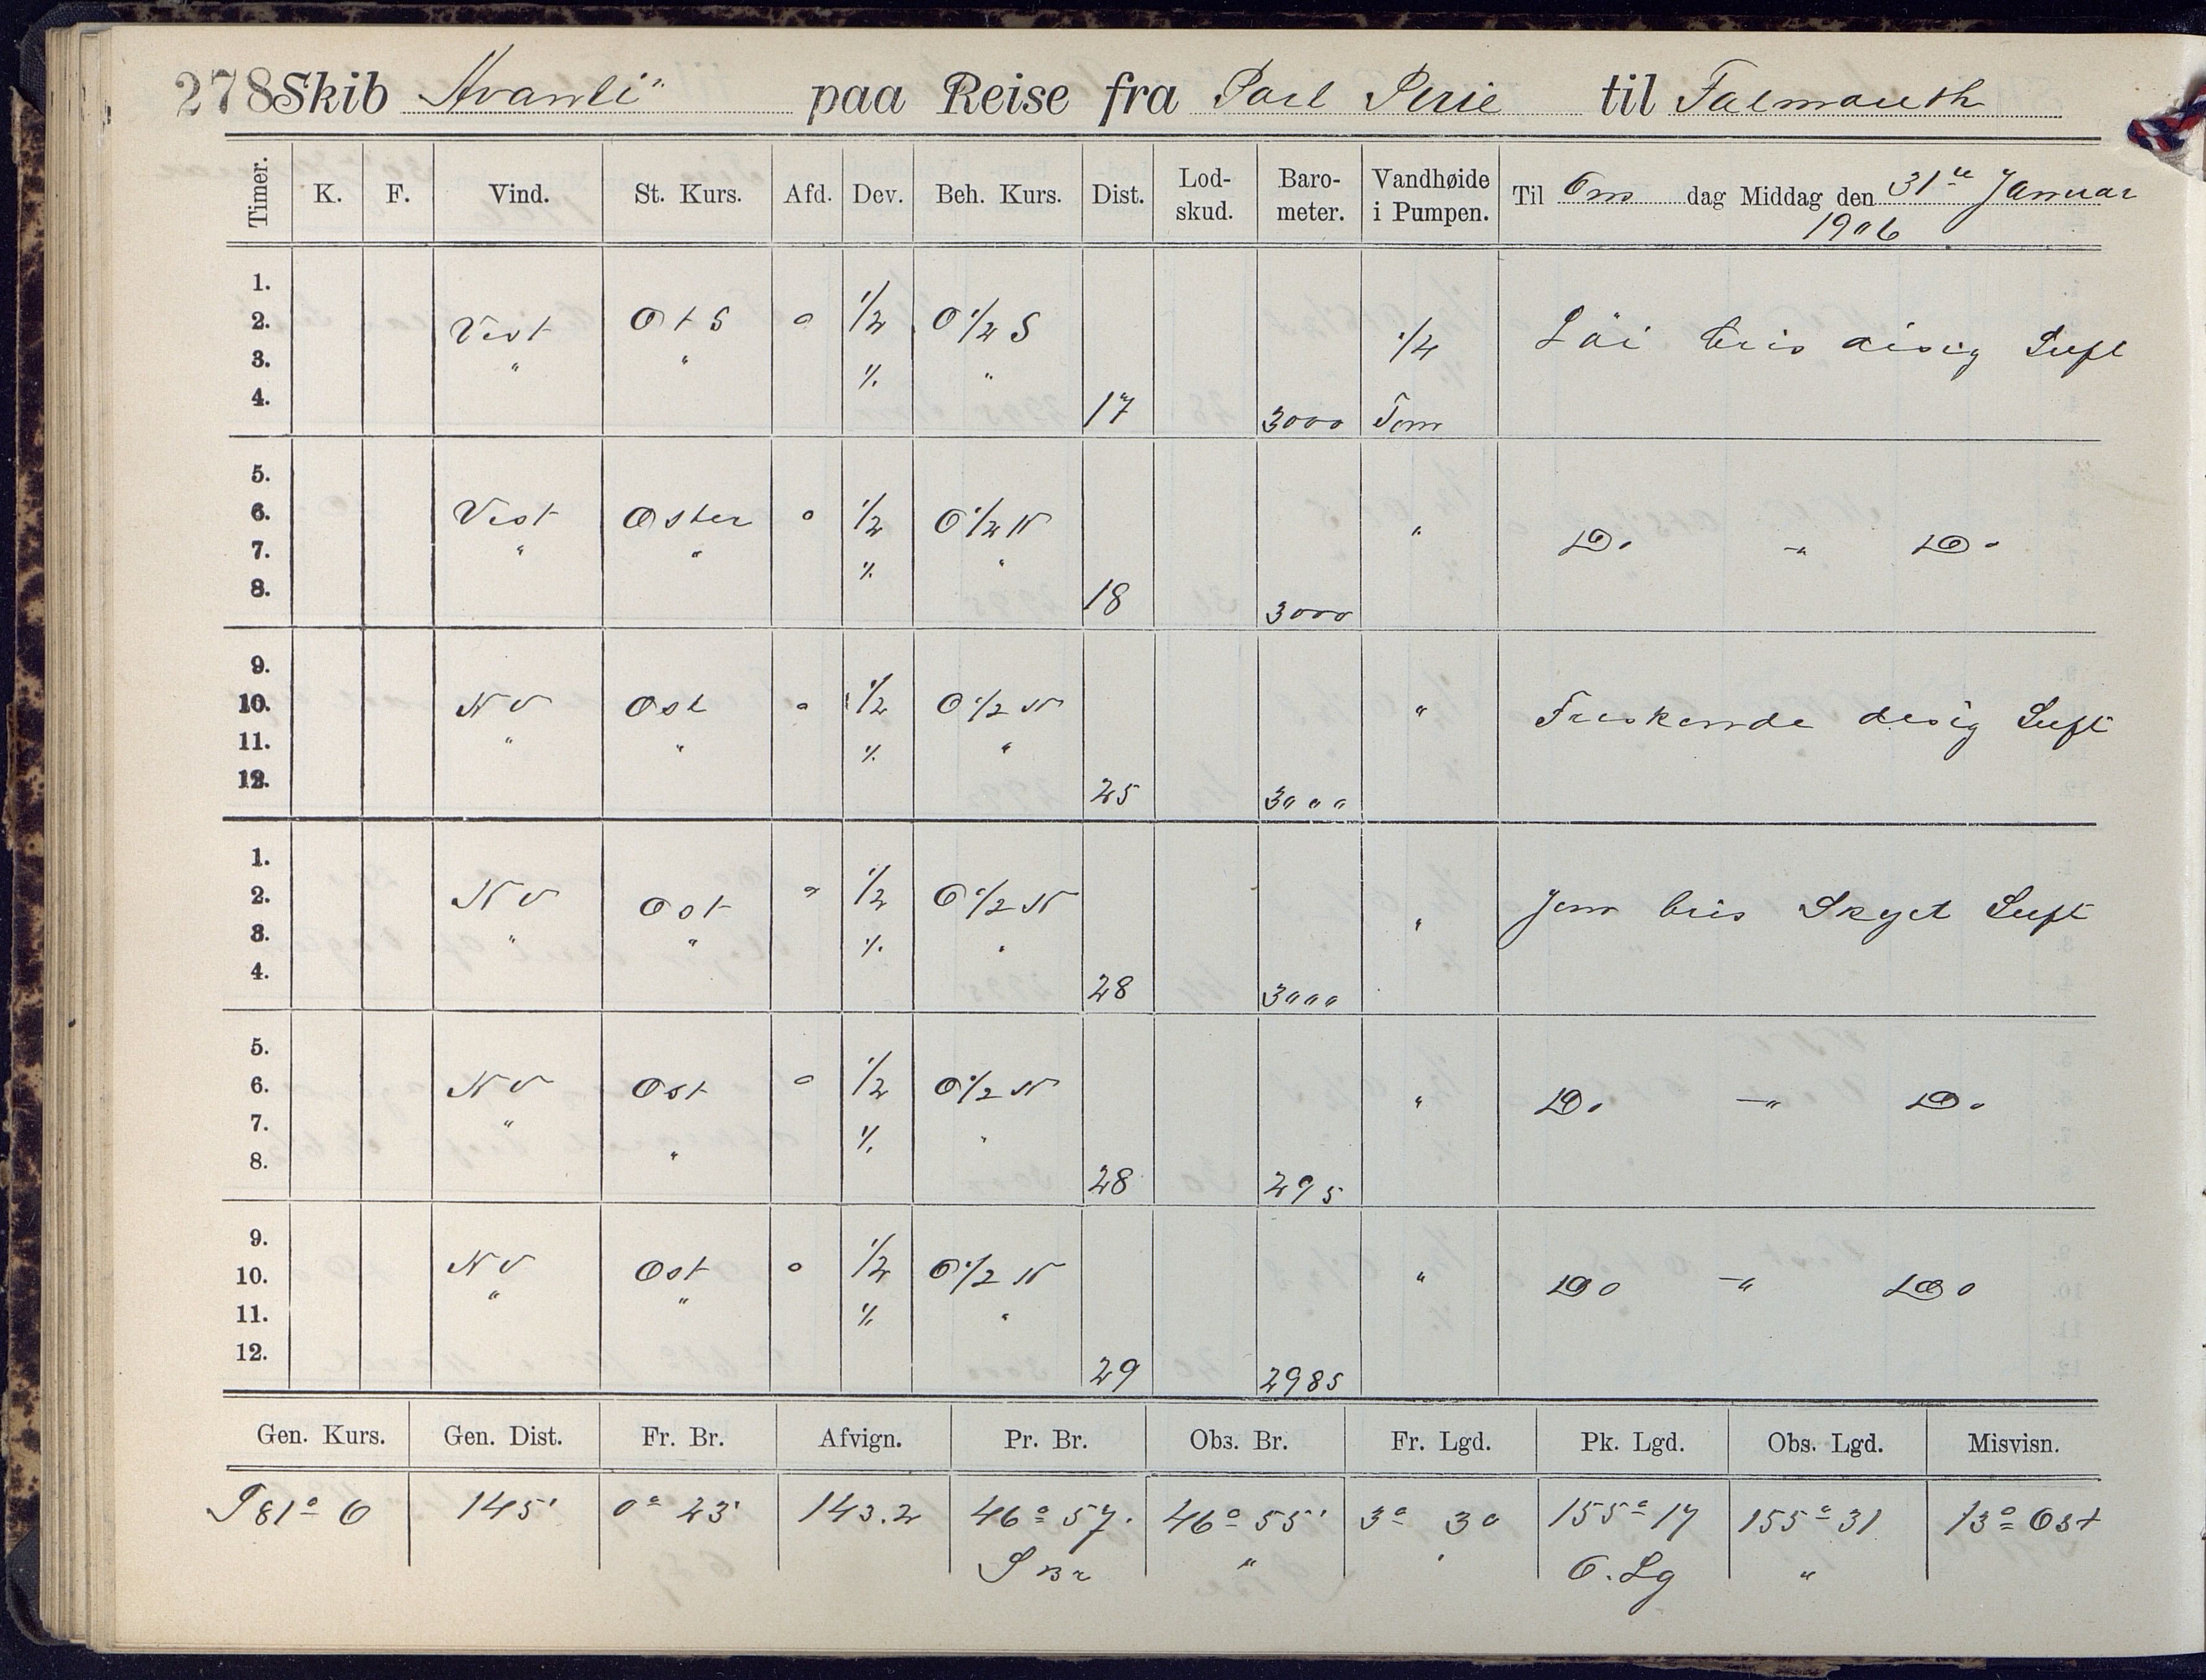 278 Skib "Avanti" paa Reise fra Port Pirie til Falmouth
Timer. K. F. Vind. St. Kurs. Afd. Dev. Beh. Kurs. Dist. Lod-skud. Baro-meter. Vandhøide i Pumpen. Til Ons dag Middag den 31te Januar 1906
1.
2. Vest O t S 0 1/2 O 1/2 S 1/4 Löi bris disig Luft
3. " " % "
4. 17 3000 Tom
5.
6. Vest Oster 0 1/2 O 1/2 N " Do - " Do
7. " " % "
8. 18 3000
9.
10. NV Ost 0 1/2 O 1/2 N " Friskende disig Luft
11. " " % "
12. 25 3000
1.
2. NV Ost 0 1/2 O 1/2 N " Jevn bris Skyet Luft
3. " " % "
4. 28 3000
5.
6. NV Ost 0 1/2 O 1/2 N " Do - " Do
7. " " % "
8. 28 295
9.
10. NV Ost 0 1/2 O 1/2 N " Do - " Do
11. " " % "
12. 29 2985
Gen. Kurs. Gen. Dist. Fr. Br. Afvign. Pr. Br. Obs. Br. Fr. Lgd. Pk. Lgd. Obs. Lgd. Misvisn.
S 81° O 145' 0° 23' 143.2 46° 57' 46° 55' 3° 30 155° 17 155° 31 13° Ost
S Br " " O. Lg "